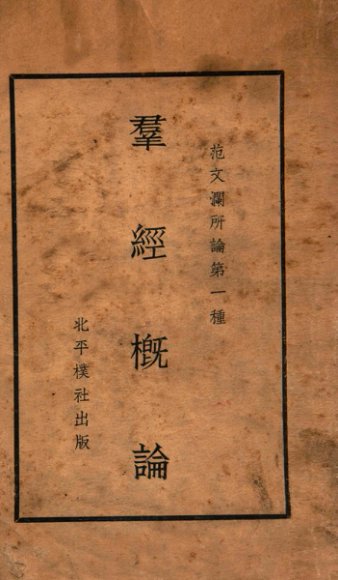 范文瀾所論第一種
羣經概論
北平樸社出版